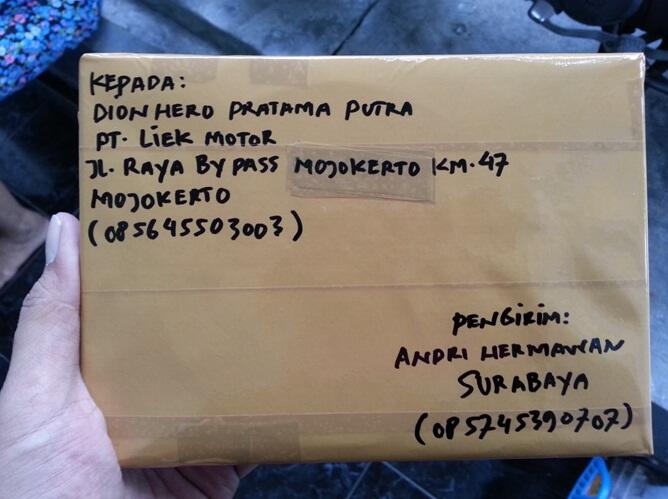 KEPADA:
DION HERO PRATAMA PUTRA
PT. LIEK MOTOR
JL. RAYA BY PASS MOJOKERTO KM. 47
MOJOKERTO
(085645503003)
PENGIRIM:
ANDRI HERMAWAN
SURABAYA
(085745390707)